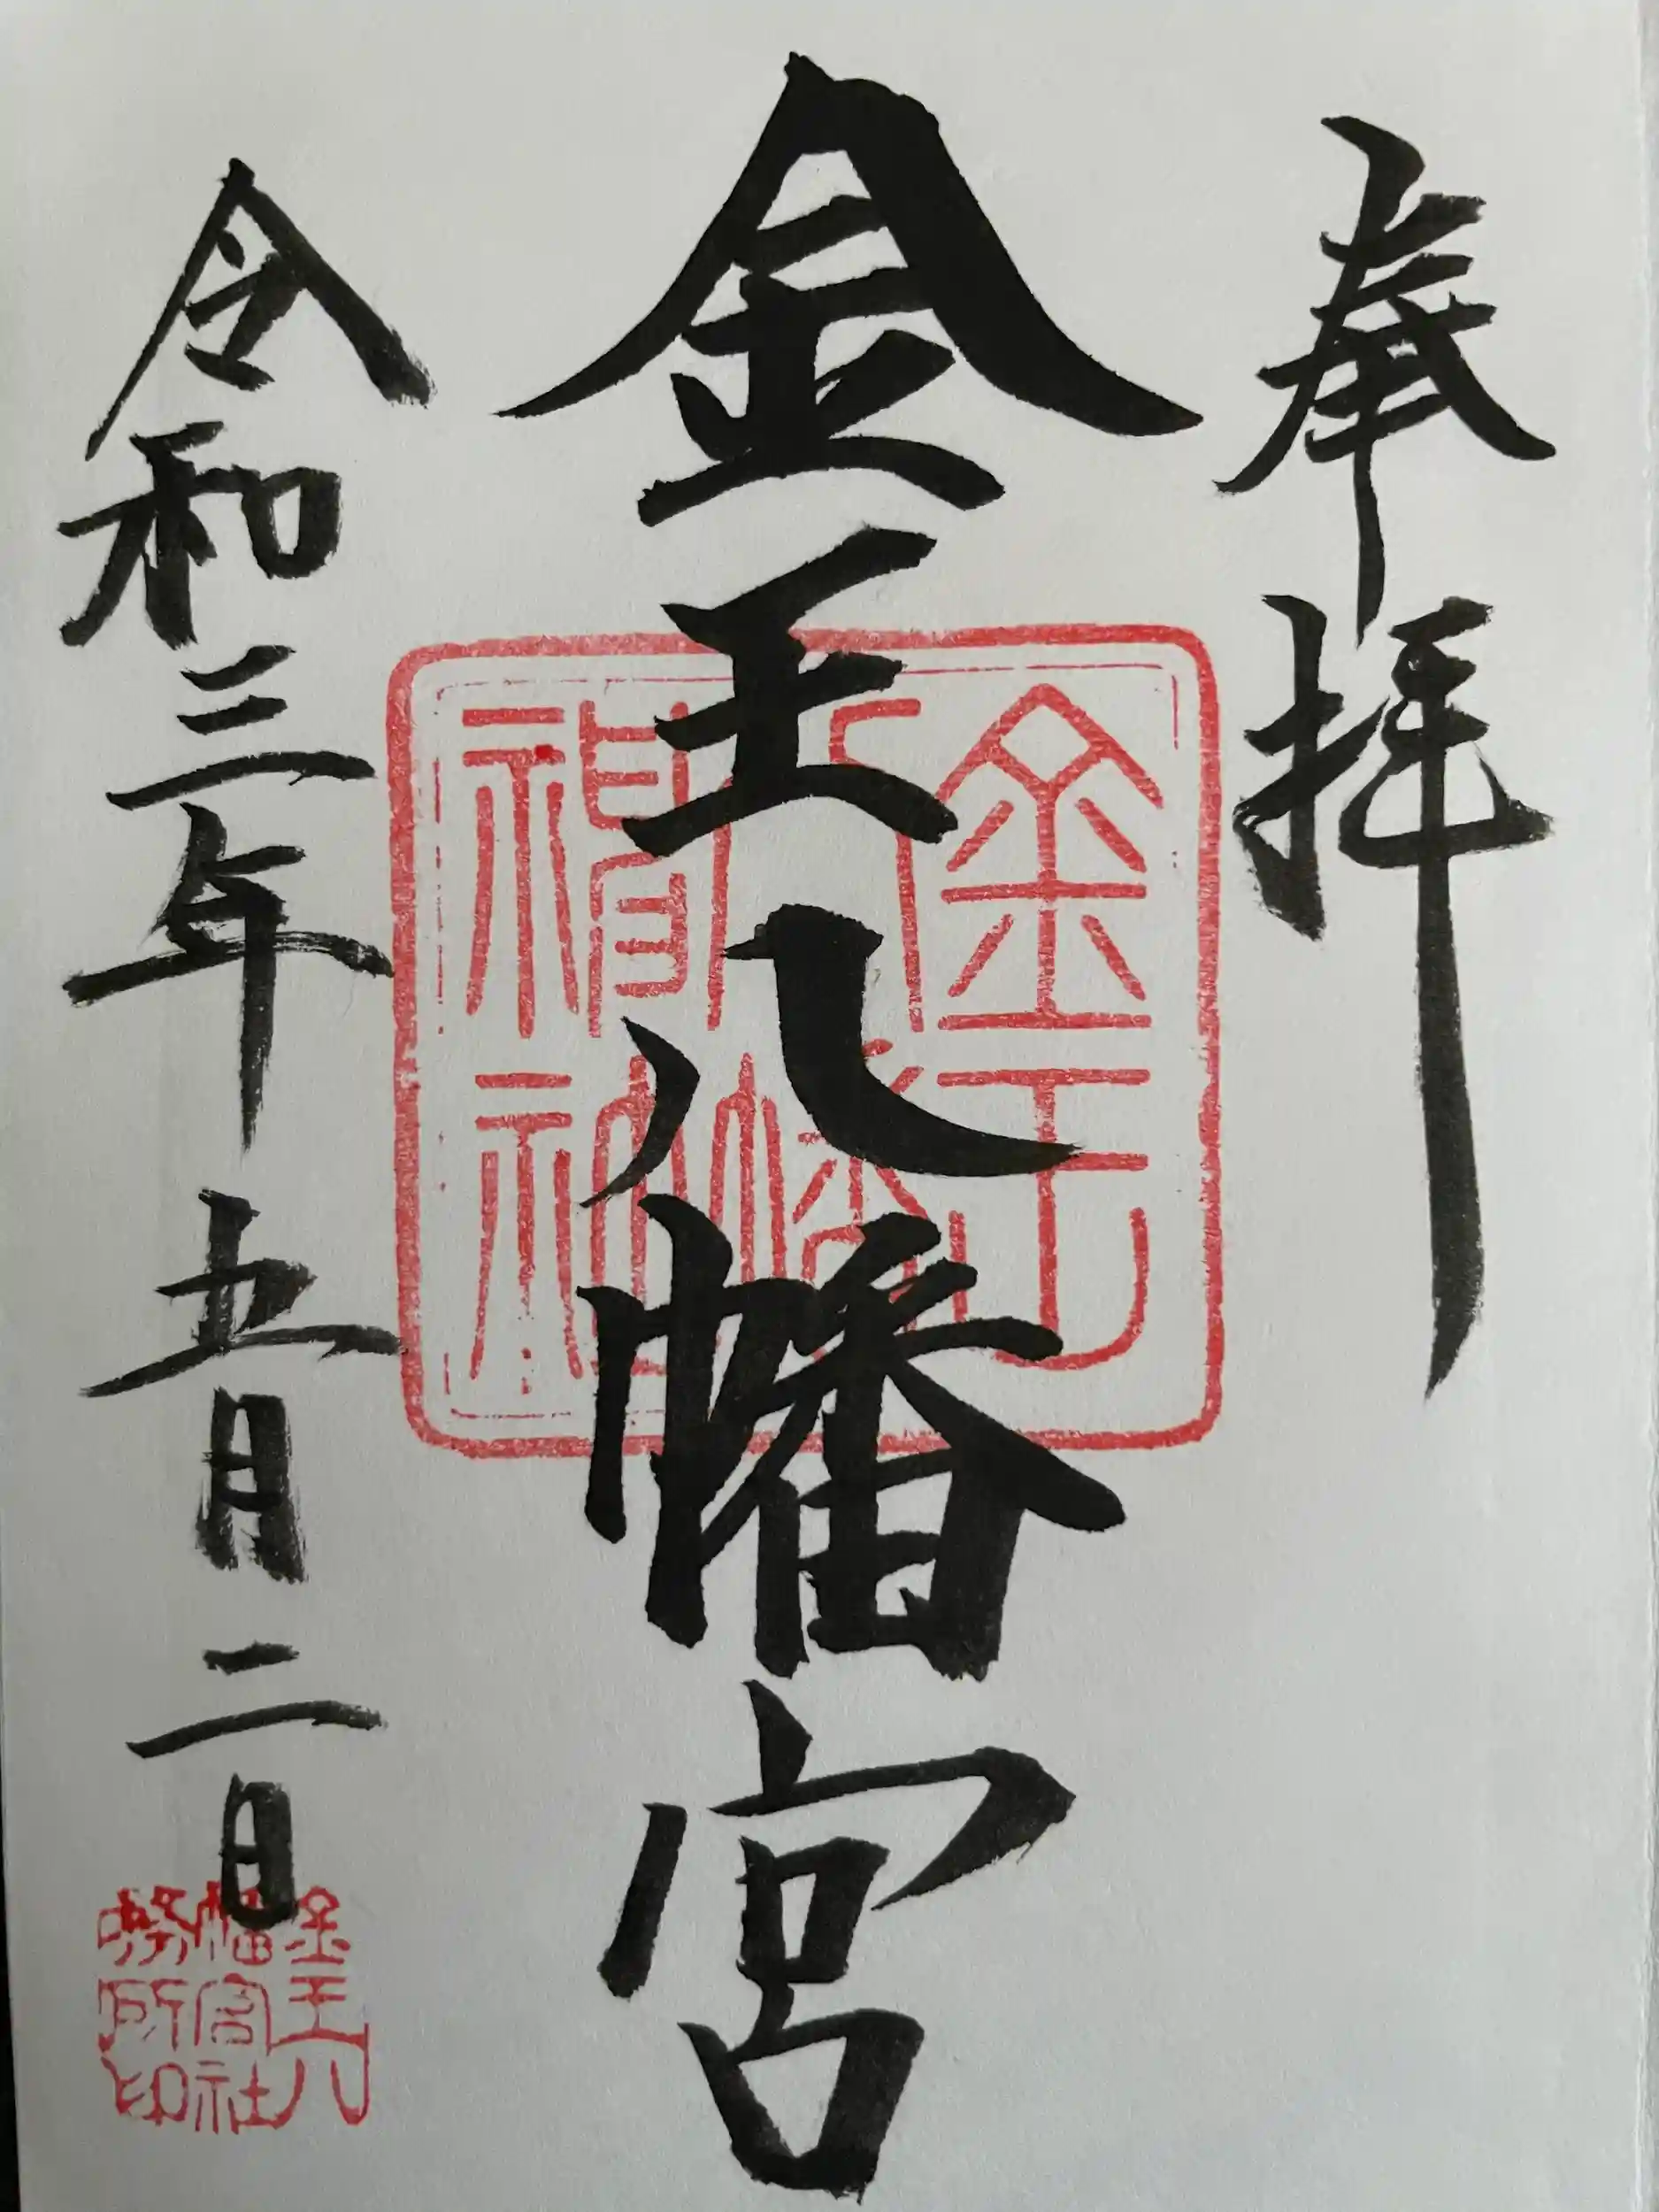 奉拝
金王八幡宮
令和三年五月二日
金王八
幡宮社
務所印